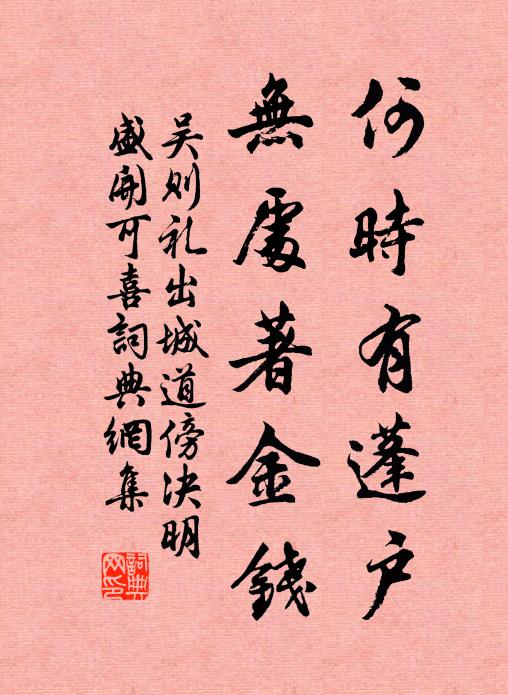 何時有蓬戶
無處著金錢
吴则礼出城道傍决明
盛開可喜詞典網集
詞典网印